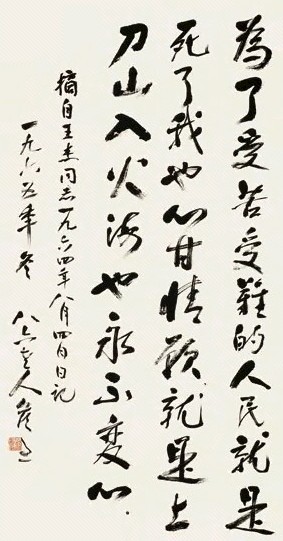 為了受苦受難的人民就是
死了我也心甘情願就是上
刀山入火海也永不变心.
摘自王杰同志一九六四年八月四日日记
一九六五年冬 八六老人